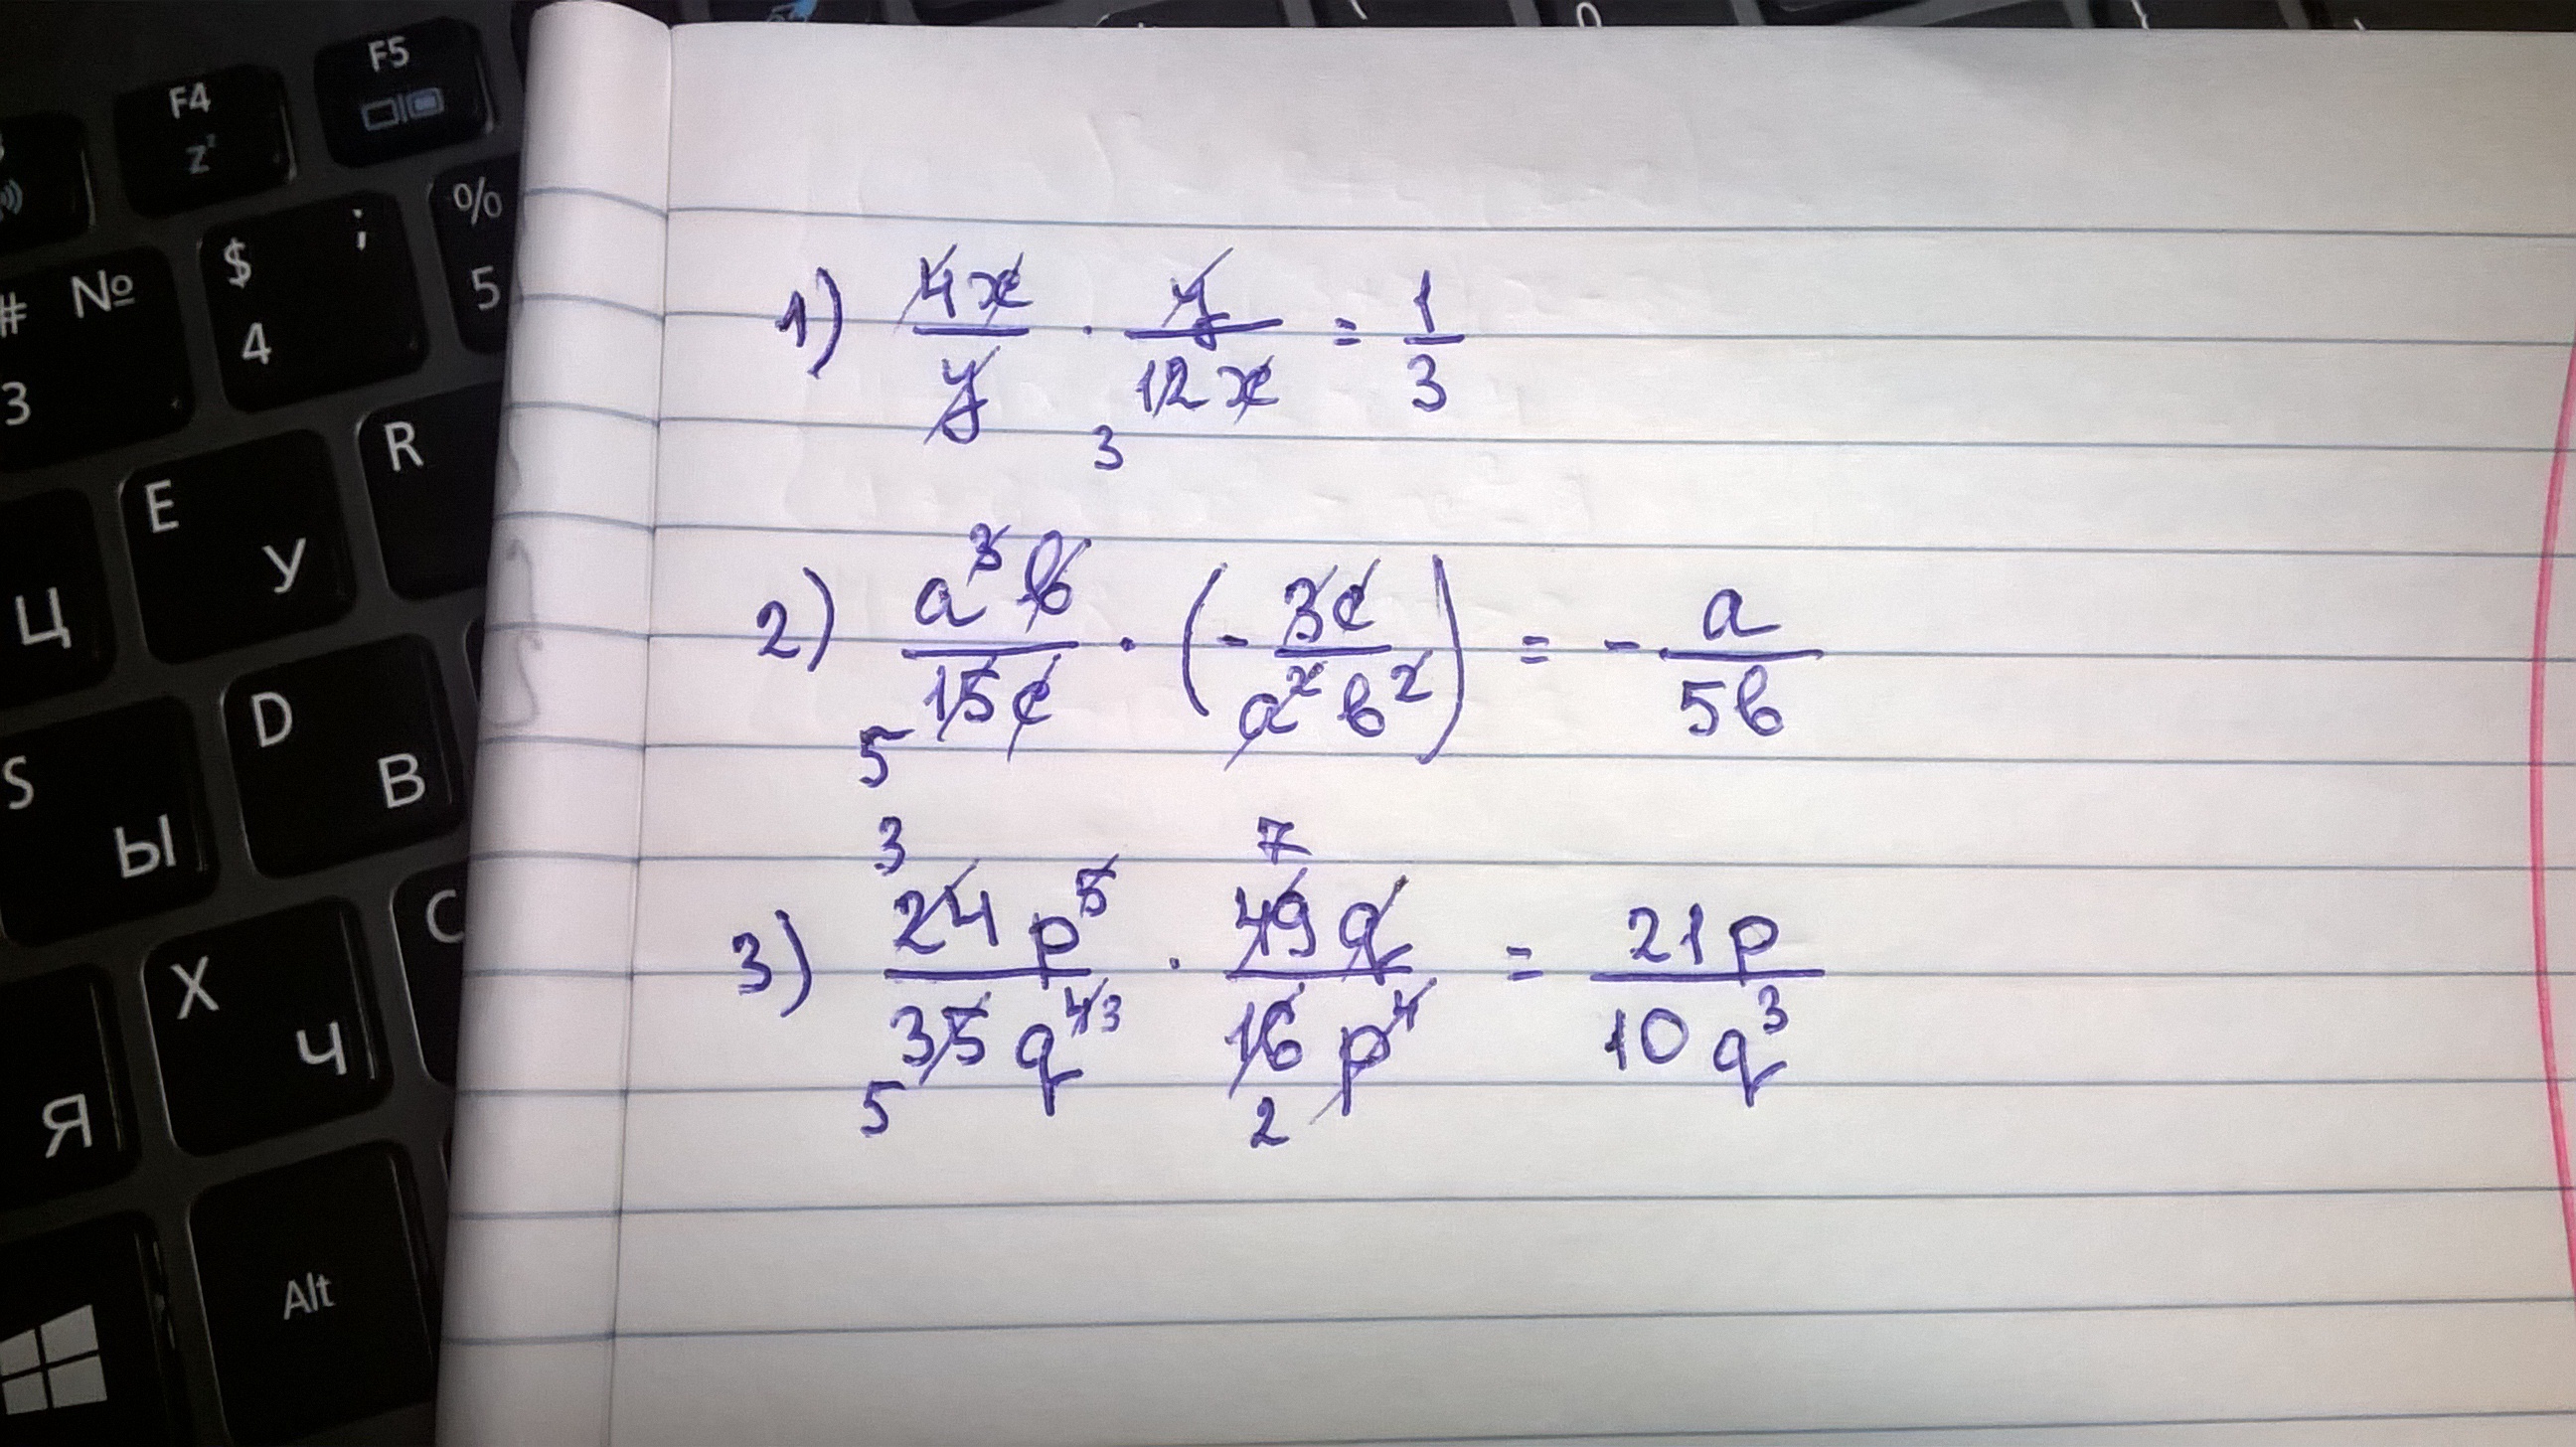 F5
F4
z
%
5
$ ;
4
# №
3
R
E
У
Ц
D
В
S
Ы
C
X
Ч
Я
Alt
1) 4x/y · y/12x = 1/3
3
2) a³b/15c · (- 3c/a²b²) = - a/5b
5
3 7
3) 24p⁵/35q⁴³ · 49q/16p⁴ = 21p/10q³
5 2